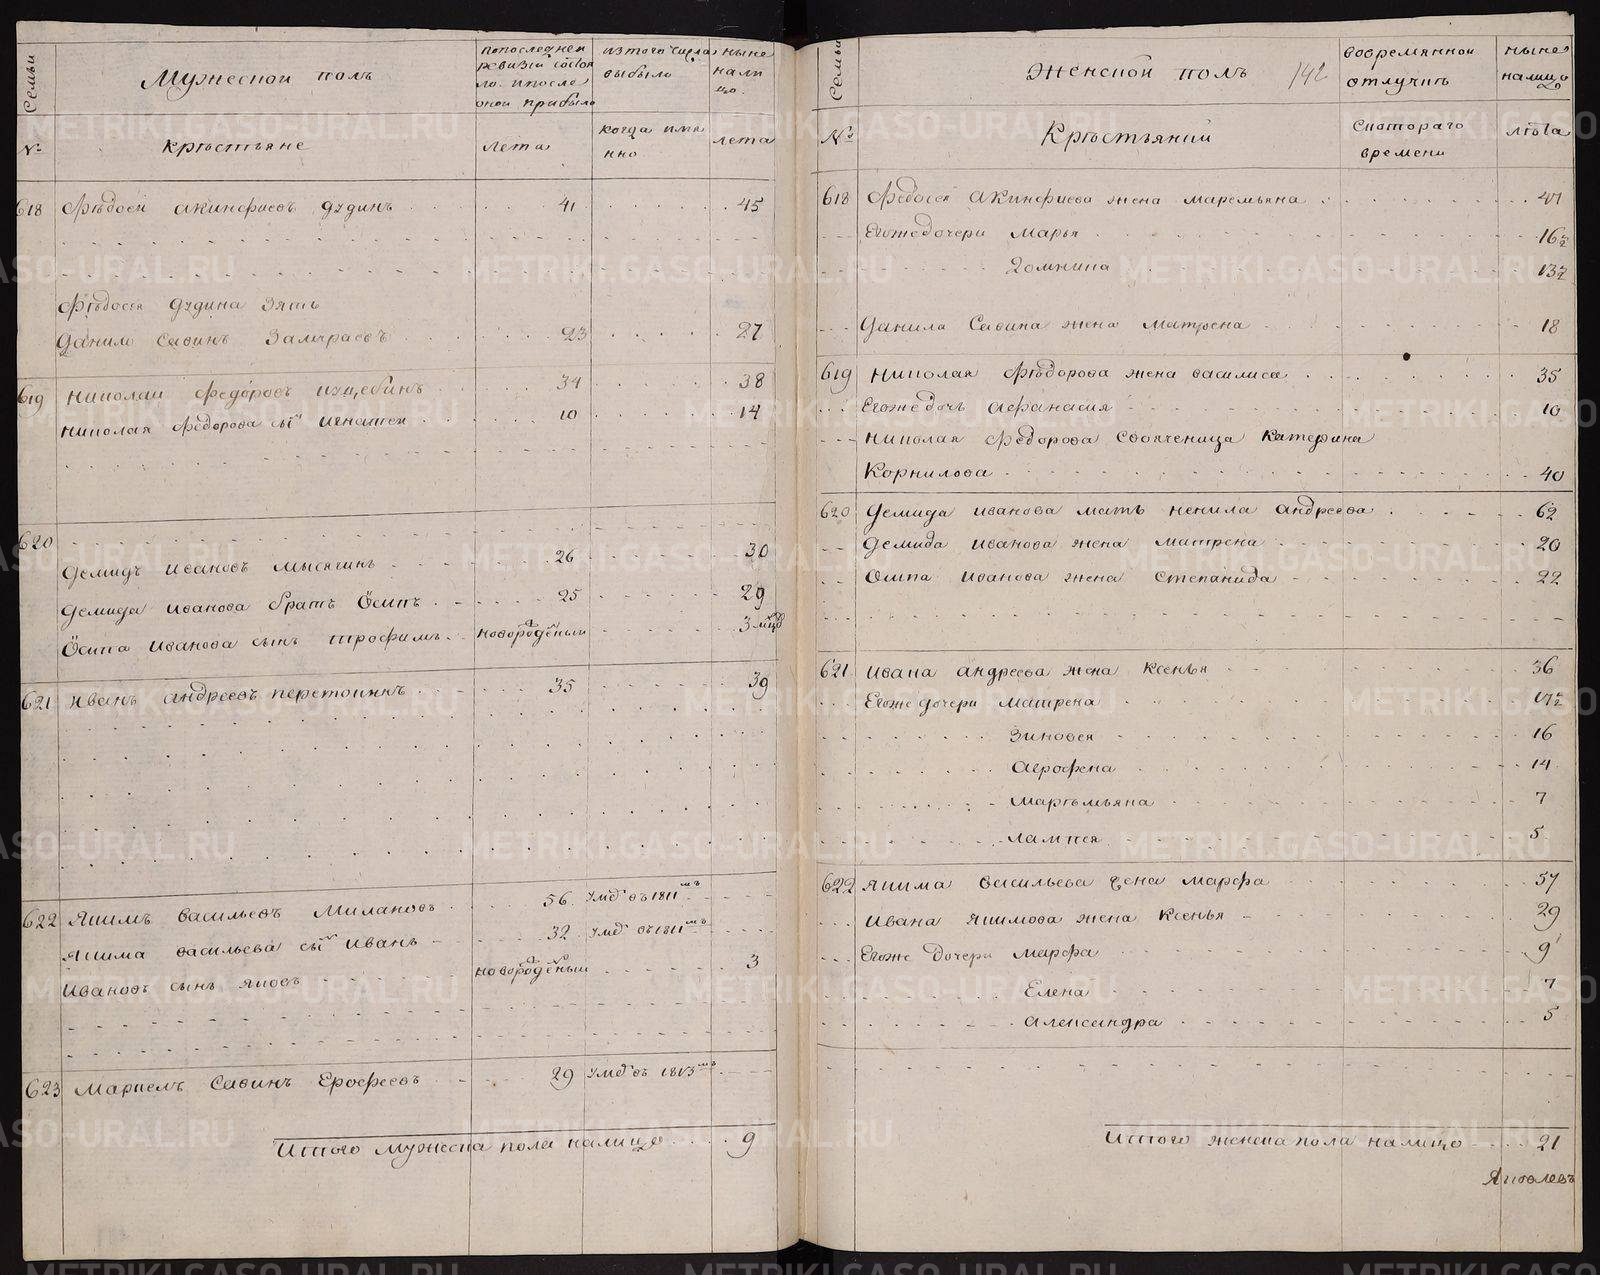 Семьи
Мужескои полъ
попоследнеи
ревизiи состоя
ло. ипосле
онои прибыло
изтого числа
выбыло
ныне
нали
цо.
№
крѣстьяне
лета
когда имя
нно
лета
618 Фѣдосеи акинфиевъ дудинъ 41 45
Фѣдосея дудина Зять
Данило Савинъ 23 27
619 Николаи Федоровъ 34 38
Николая Федорова сынъ игнатеи 10 14
620
Демидъ ивановъ мысягинъ 26 30
Демида иванова братъ Осипъ 25 29
Осипа иванова сынъ трофимъ новорожденыи 3 мцов
621 иванъ андреевъ 35 39
622 Якимъ васильевъ Милаковъ 56 умре въ 1811мъ
якима васильева сынъ иванъ 32 умре въ 1811мъ
ивановъ сынъ яковъ новорожденыи 3
623 Маркелъ Савинъ Ерофеевъ 29 умре въ 1813мъ
Итого мужеска пола налицо 9
Семьи
Женскои полъ
142
вовремяннои
отлучкѣ
ныне
налицо
№
Крѣстьянки
Скотораго
времени
лѣта
618 Федосея акинфиева жена маремьяна 47
Егожедочери Марья 16
домнина 13
Данила Савина жена матрена 18
619 николая Фѣдорова жена василиса 35
Егоже дочь афанасия 10
николая федорова своячсница катерина
Корнилова 40
620 Демида иванова мать ненила андреева 62
Демида иванова жена матрена 20
Осипа иванова жена степанида 22
621 ивана андреева жена Ксенья 36
Егоже дочери матрена 17
Зиновея 16
агрофена 14
Марѣмьяна 7
лампея 5
622 якима васильева жена марфа 57
ивана якимова жена ксенья 29
Егоже дочери марфа 9
Елена 7
александра 5
Итого женска пола налицо 21
Яковлевъ
METRIKI.GASO-URAL.RU